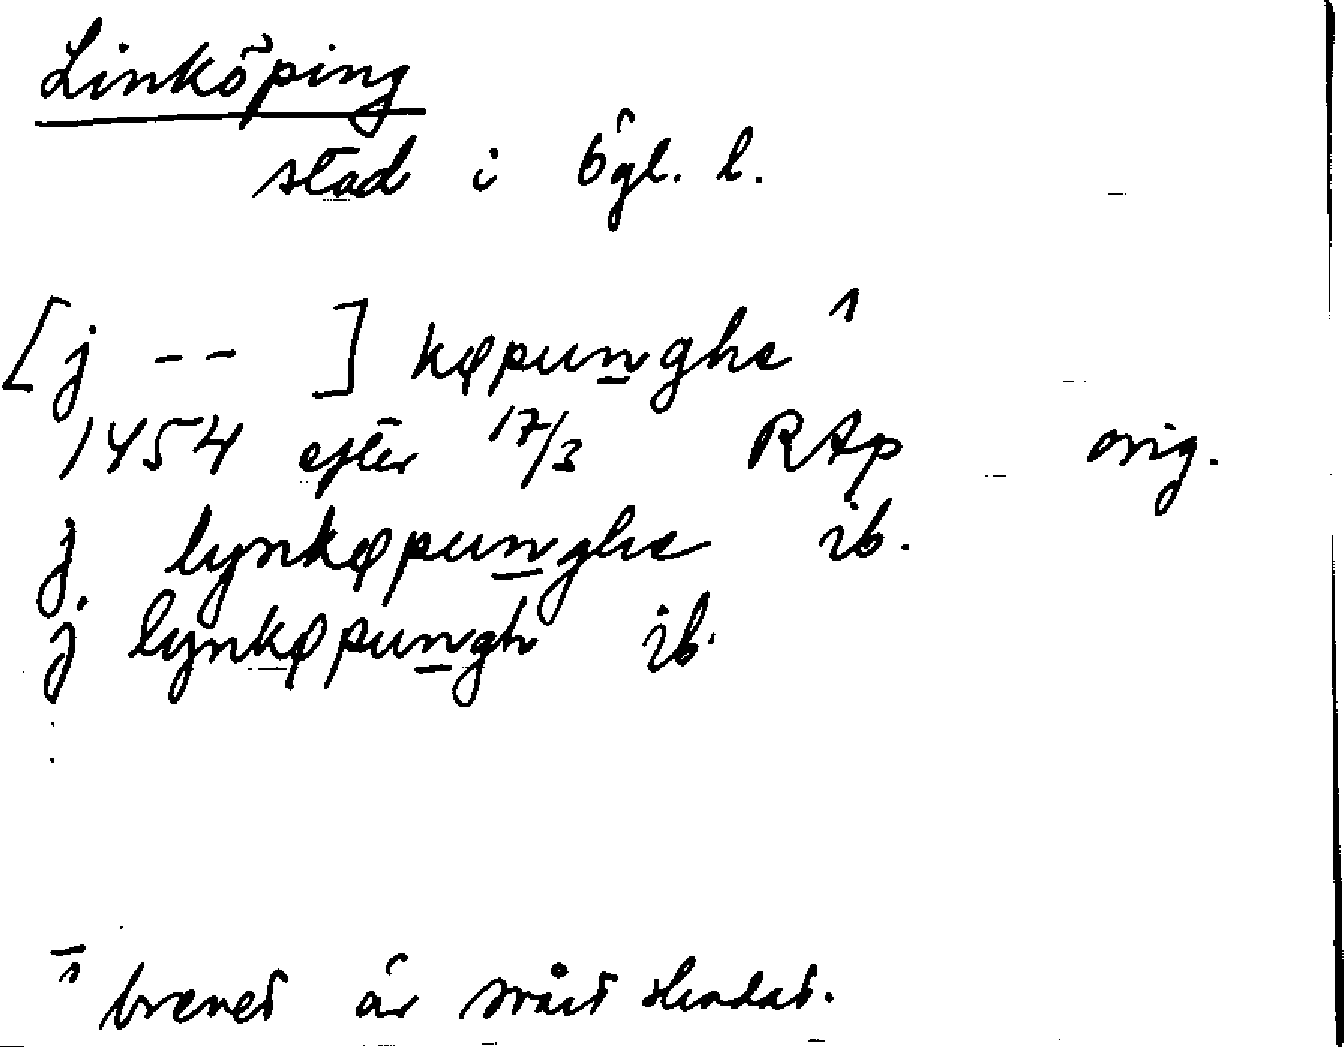 Linköping
stad i Ögl. l.
[j -- ] køpunghe 1
1454 efter 17/3 RAp orig.
j lynkøpunghe ib.
j lynkøpungh ib.
1 brevet är svårt skadat.